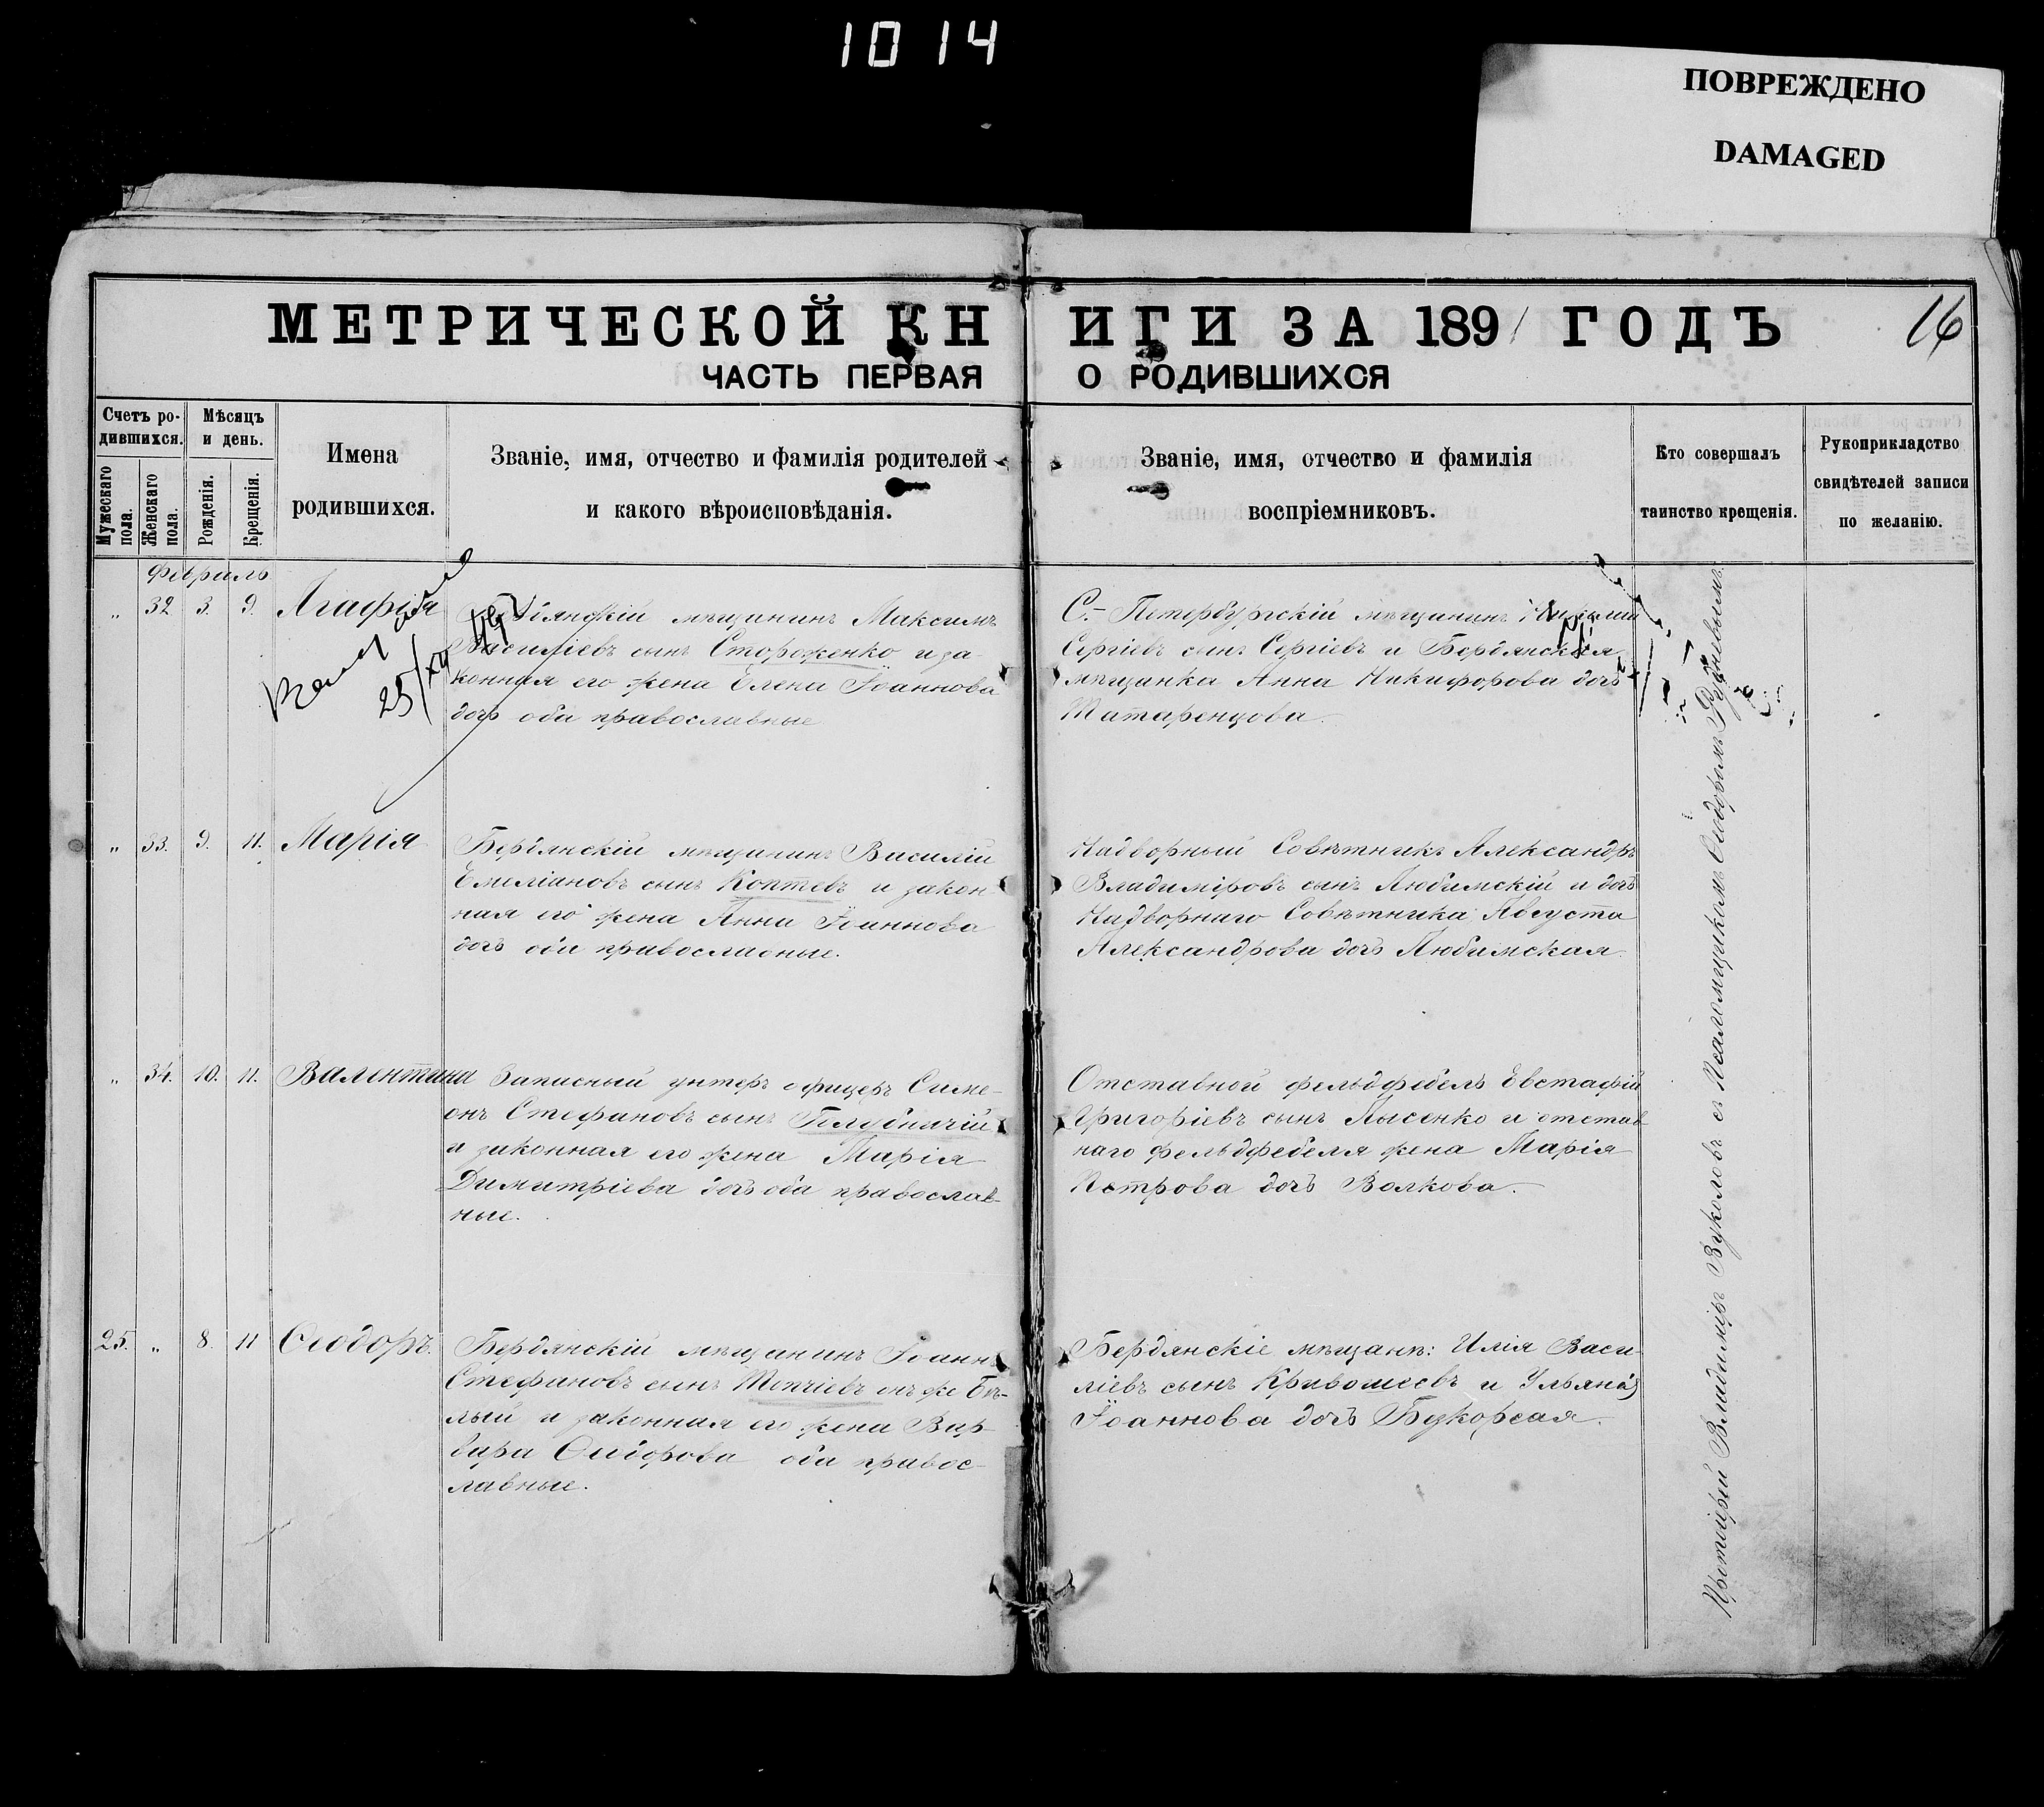 1014
ПОВРЕЖДЕНО
DAMAGED
МЕТРИЧЕСКОЙ КНИГИ ЗА 1891 ГОДЪ
16
ЧАСТЬ ПЕРВАЯ О РОДИВШИХСЯ
Счетъ ро-
дившихся.
Мужескаго
пола.
Женскаго
пола.
Мѣсяцъ
и день.
Рожденія.
Крещенія.
Имена
родившихся.
Званіе, имя, отчество и фамилія родителей
и какого вѣроисповѣданія.
Званіе, имя, отчество и фамилія
воспріемниковъ.
Кто совершалъ
таинство крещенія.
Рукоприкладство
свидѣтелей записи
по желанію.
Февраль
„ 32 3. 9. Агафія
мѣщанинъ Максимъ
Василіевъ сынъ Стороженко и за-
конная его жена Елена Іоаннова
дочь оба православные
С.- Петербургскій мѣщанинъ
Сергіевъ сынъ Сергіевъ и Бердянская
мѣщанка Анна Никифорова дочь
Татаренцова.
„ 33. 9. 11. Марія
Бердянскій мѣщанинъ Василій
Емеліановъ сынъ Коптевъ и закон-
ная его жена Анна Іоаннова
дочь оба православные.
Надворный Совѣтникъ Александръ
Владиміровъ сынъ Любимскій и дочь
Надворнаго Совѣтника Августа
Александрова дочь Любимская.
„ 34. 10. 11. Валентина
Запасный унтеръ офицеръ Симе-
онъ Стефановъ сынъ
и законная его жена Марія
Димитріева дочь оба православ-
ные.
Отставной фельдфебель Евстафій
Григоріевъ сынъ Лысенко и отстав-
наго фельдфебеля жена Марія
Петрова дочь Волкова.
25. „ 8. 11 Ѳеодоръ.
Бердянскій мѣщанинъ Іоаннъ
Стефановъ сынъ онъ же Бѣ-
лый и законная его жена Вар-
вара оба правос-
лавные.
Бердянскіе мѣщане: Илія Васи-
ліевъ сынъ и Ульяна
Іоаннова дочь
Протоіерей Владиміръ Вуколовъ съ Псаломщикомъ Ѳеодоромъ Рудневымъ.